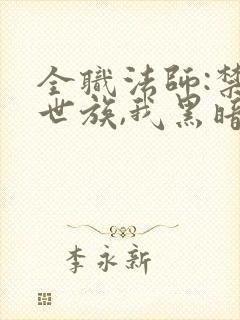 全職法師:禁
世族,我黑暗
李永新